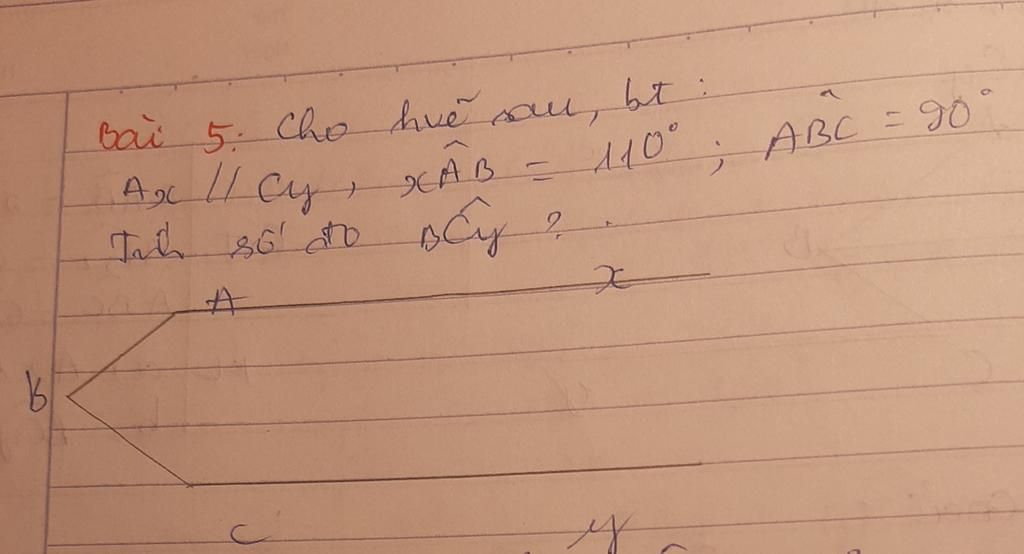 Bài 5: Cho hvẽ sau, bt:
Ax // Cy, xÂB = 110°; ABC = 90°
Tính số đo BĈy?
A x
B
C y